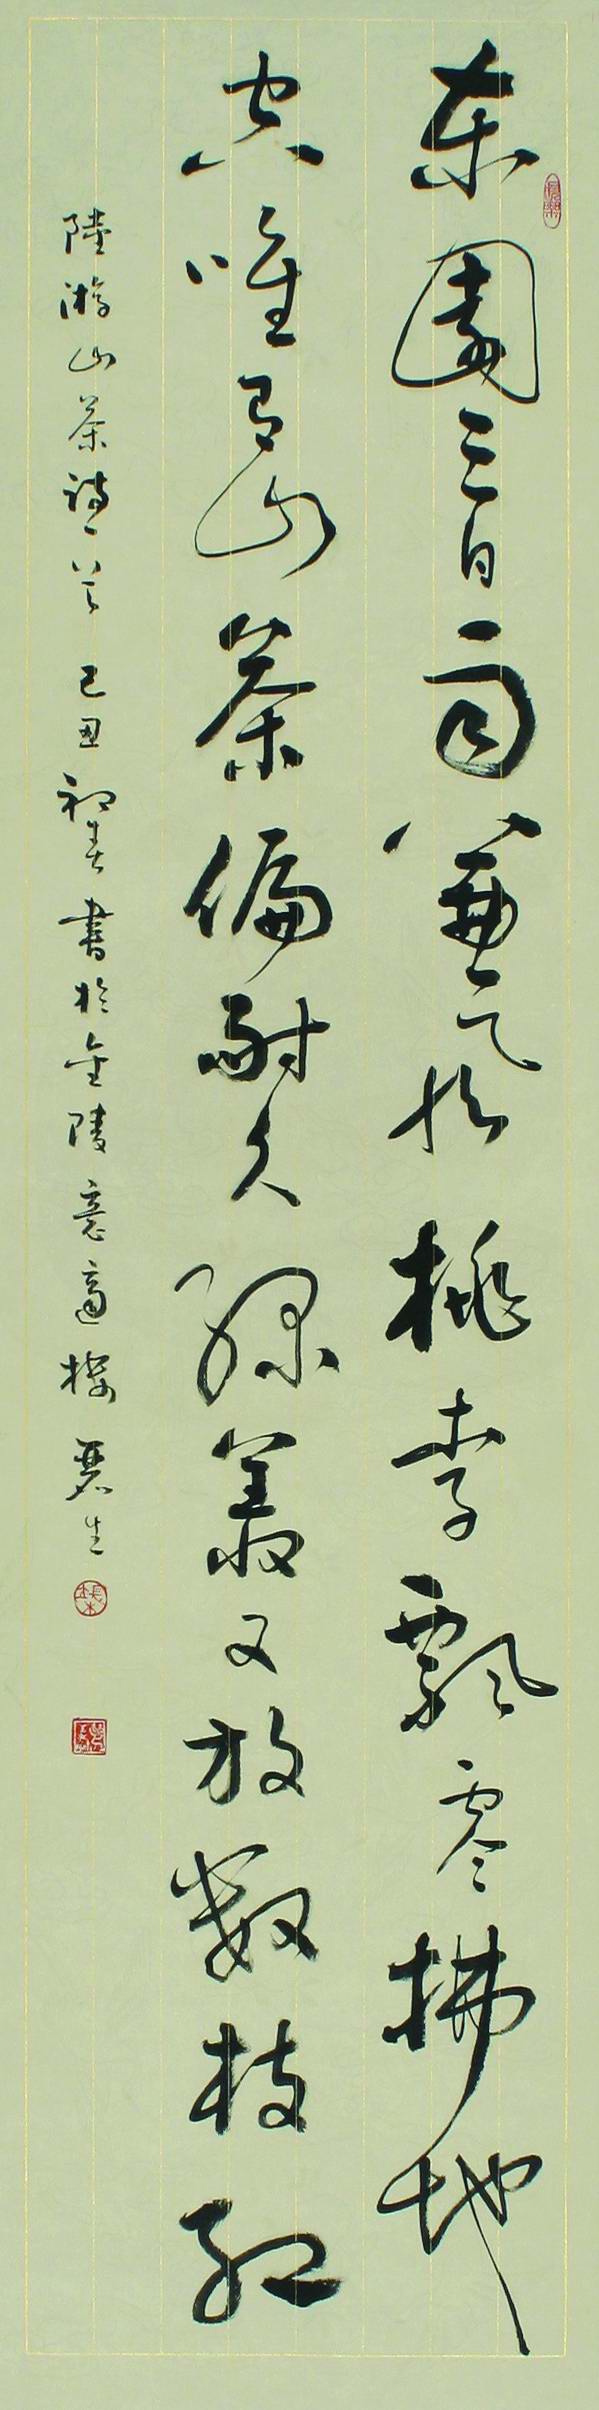 東園三日雨兼風桃李飄零拂地
空唯有山茶偏耐久綠叢又放數枝紅
陸游山茶詩一首 己丑初春書於金陵意適樓 碧生